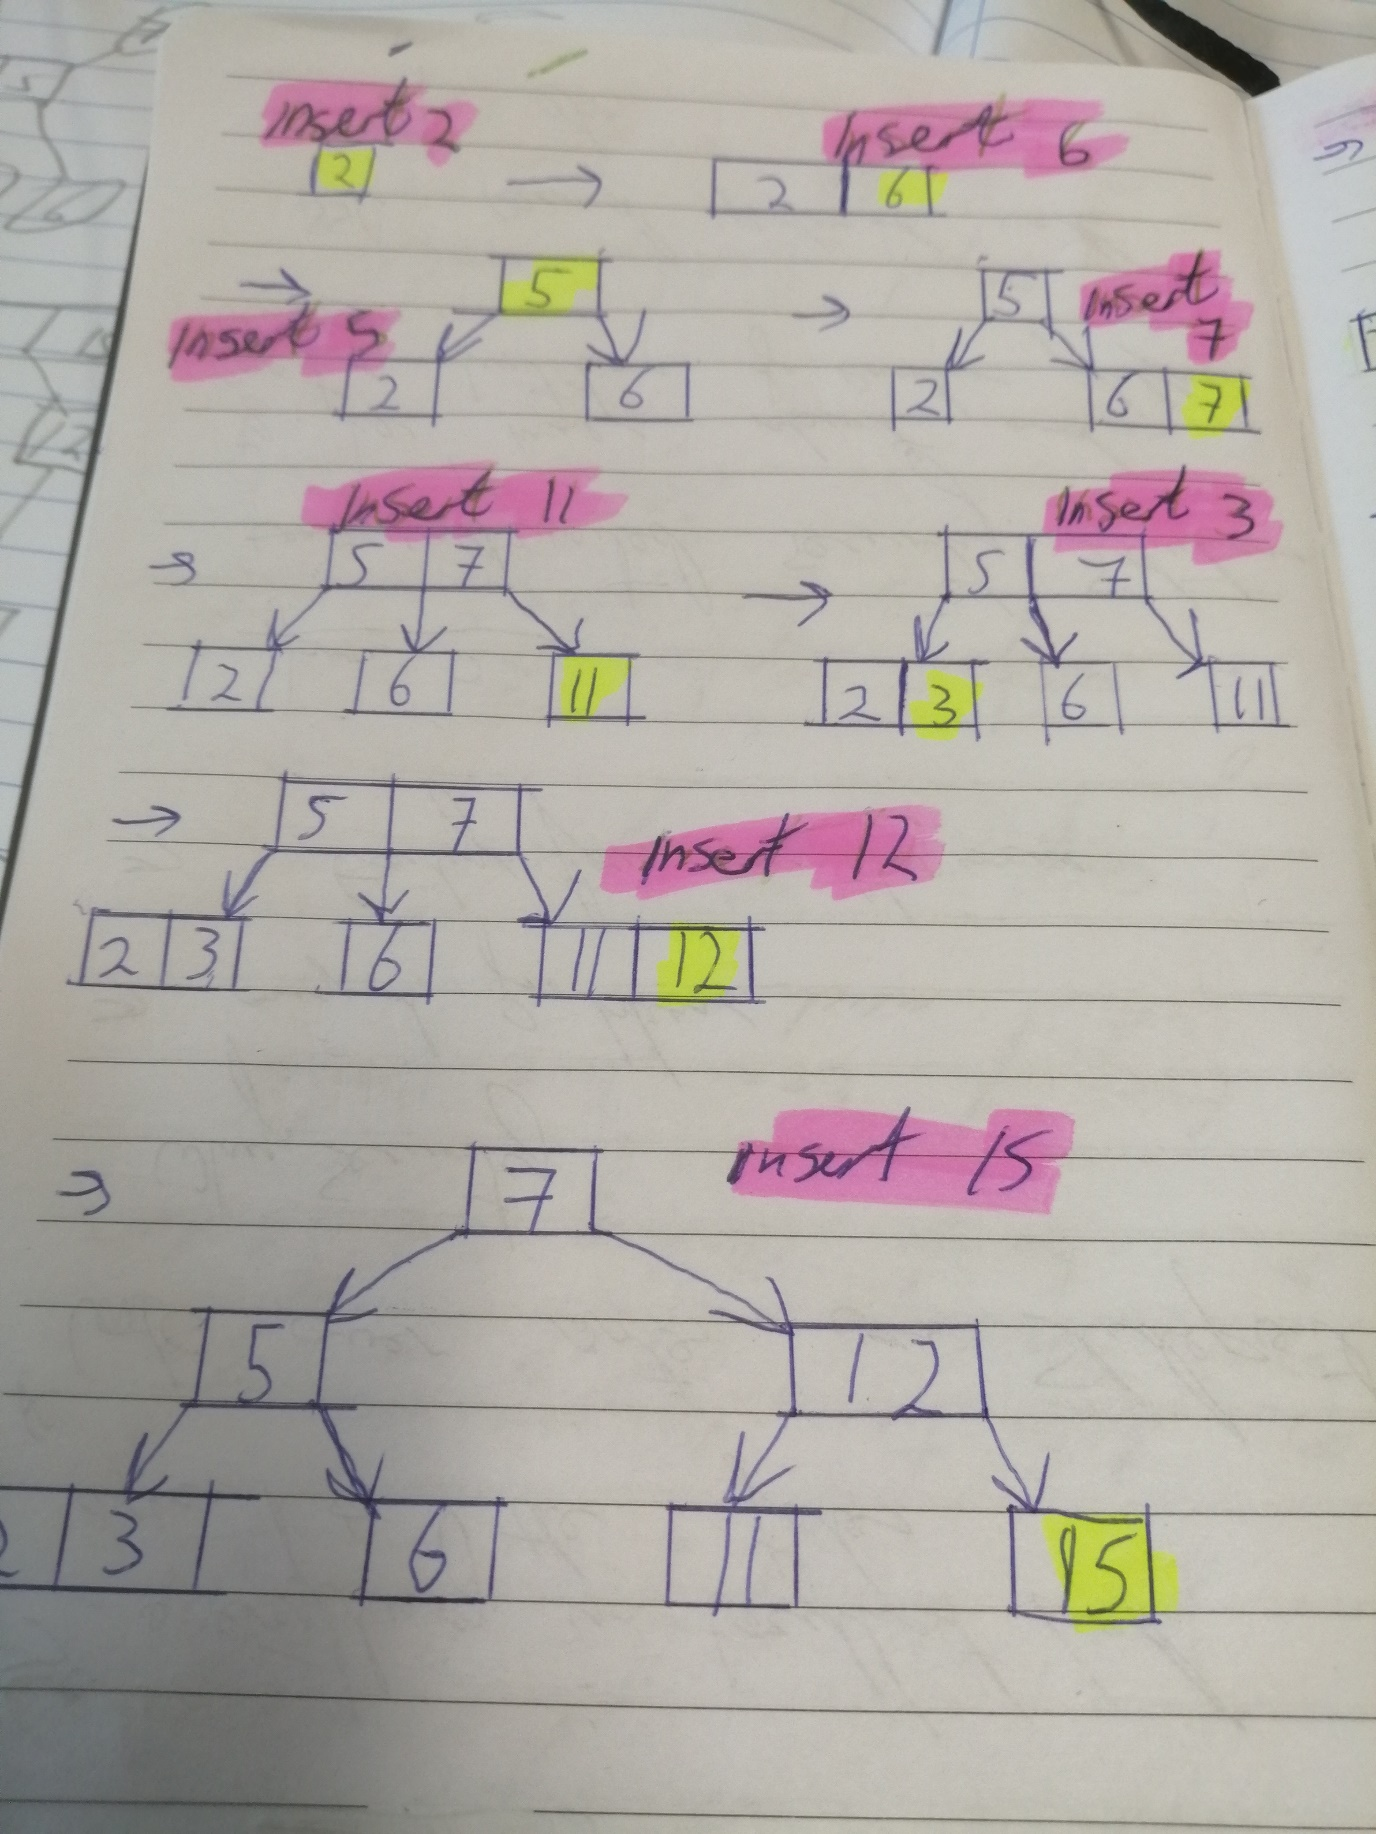 Insert 2
2
Insert 6
2 6
5
Insert 5
2 6
5
Insert 7
2 6 7
Insert 11
5 7
2 6 11
Insert 3
5 7
2 3 6 11
5 7
Insert 12
2 3 6 11 12
Insert 15
7
5 12
2 3 6 11 15